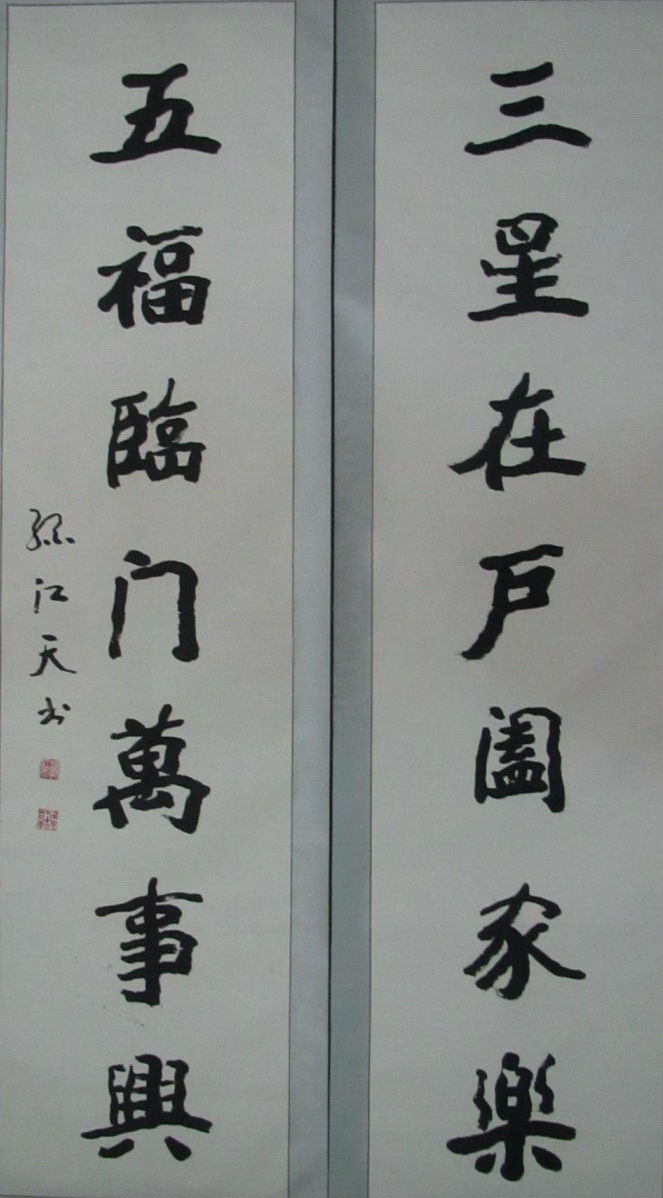 三星在戶阖家樂
五福臨门萬事興
孫江天书